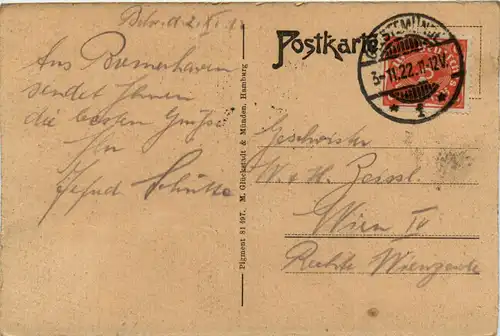 Bhv. d. 2. XI.
Aus Bremerhaven
sendet Ihnen
die besten Grüße
Ihr
Schütte
Pigment 81 697. M. Glückstadt & Münden, Hamburg
Postkarte
GEESTEMÜNDE
3-11.22.11-12V.
* 1 *
Geschwister
W. & H. Zeissl
Wien IV
Rechte Wienzeile